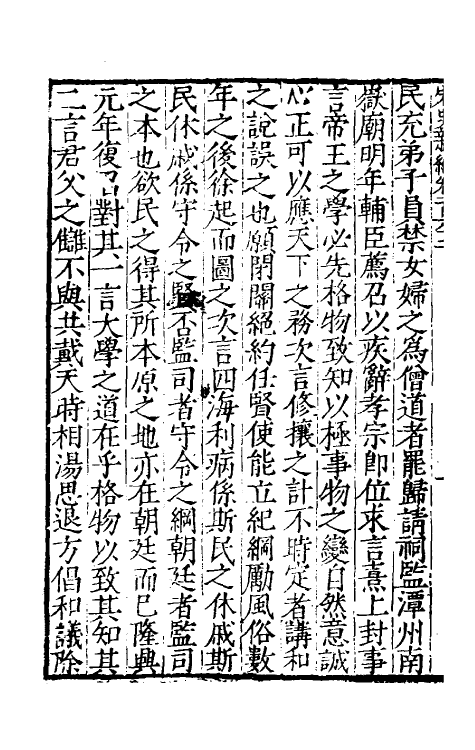 民充弟子員禁女婦之為僧道者罷歸請祠監潭州南
嶽廟明年輔臣薦召以疾辭孝宗即位求言熹上封事
言帝王之學必先格物致知以極事物之變自然意誠
心正可以應天下之務次言修攘之計不時定者講和
之說誤之也願閉關絕約任賢使能立紀綱勵風俗數
年之後徐起而圖之次言四海利病係斯民之休戚斯
民休戚係守令之賢否監司者守令之綱朝廷者監司
之本也欲民之得其所本原之地亦在朝廷而已隆興
元年復召對其一言大學之道在乎格物以致其知其
二言君父之讎不與共戴天時相湯思退方倡和議除